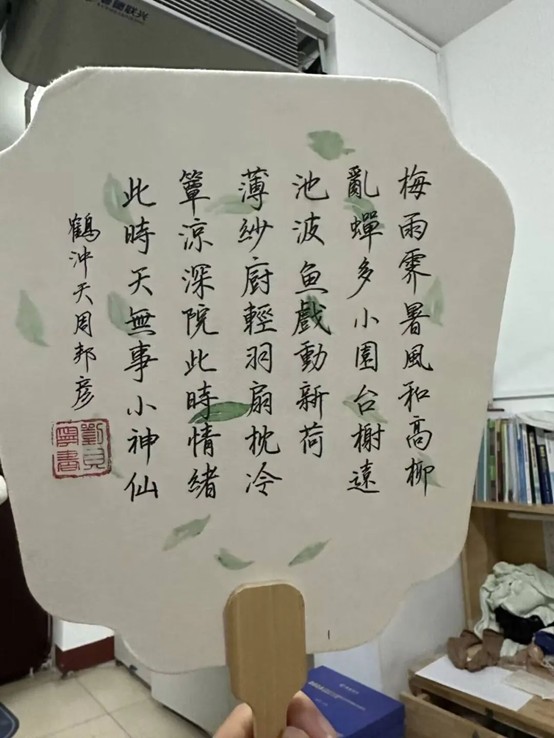 梅雨霽暑風和高柳
亂蟬多小園台榭遠
池波魚戲動新荷
薄紗厨輕羽扇枕冷
簟涼深院此時情緒
此時天無事小神仙
鶴沖天周邦彥
劉貝
寧書